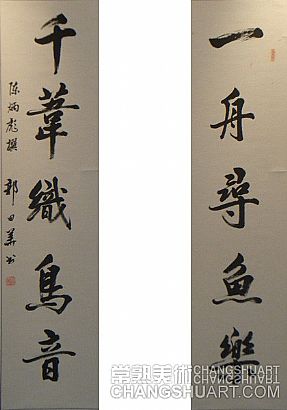 一舟尋魚樂
千葦織鳥音
陈炳彪撰 郭日美书
常熟美術 CHANGSHUART
CHANGSHUART.COM